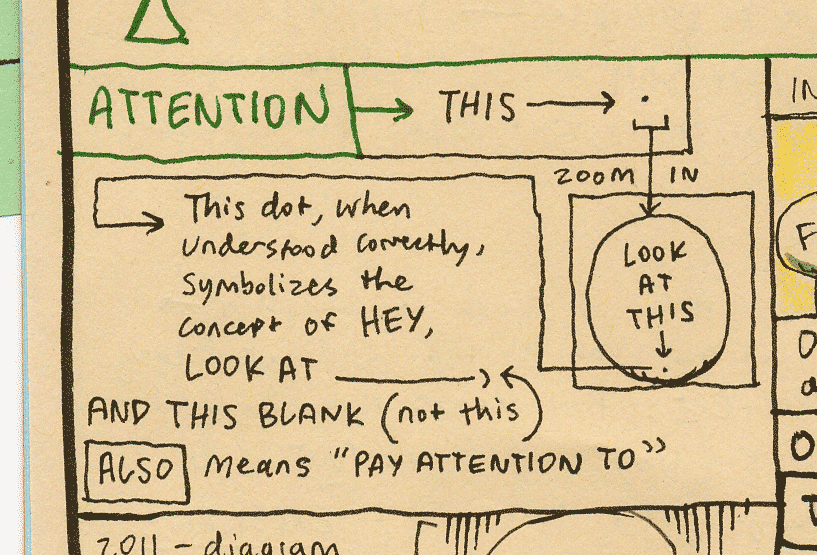 ATTENTION → THIS → .
ZOOM IN
LOOK
AT
THIS
This dot, when
understood correctly,
symbolizes the
concept of HEY,
LOOK AT ________
AND THIS BLANK (not this)
ALSO means "PAY ATTENTION TO"
2011 - diagram
IN
F
O
a
O
T